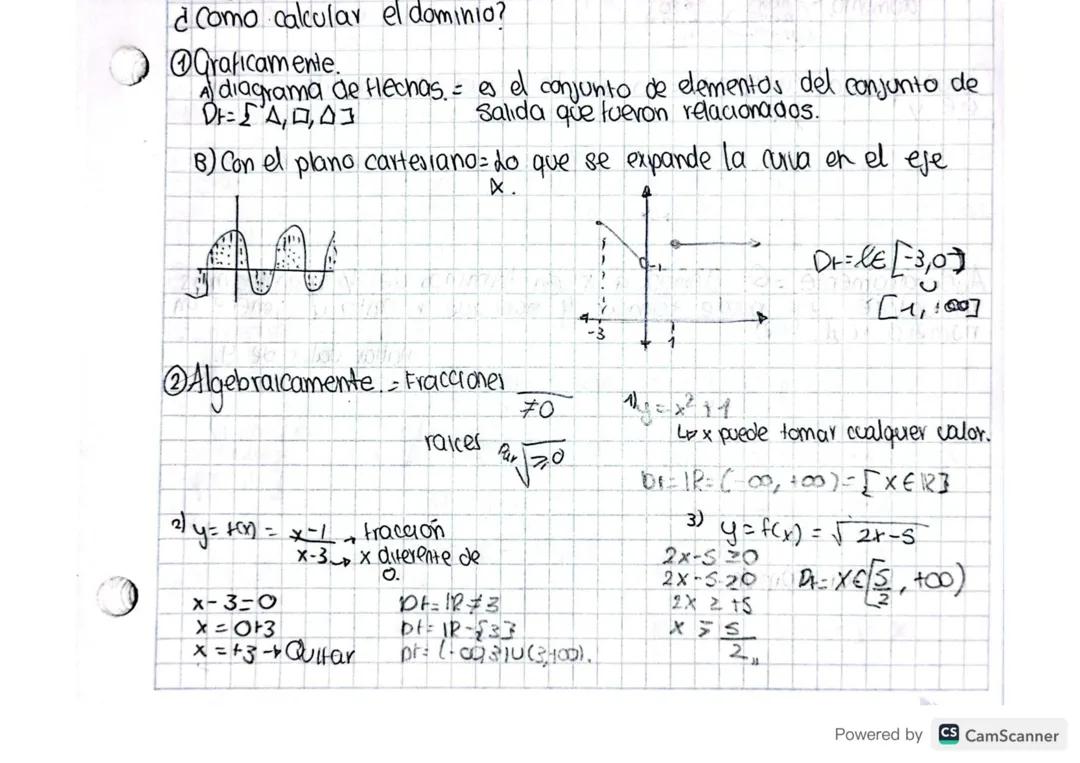 ¿Como calcular el dominio?
① Graficamente.
A) diagrama de flechas. = es el conjunto de elementos del conjunto de
Df = { Δ, □, Δ }
salida que fueron relacionados.
B) Con el plano cartesiano = Lo que se expande la curva en el eje
x.
-1
-3
1
Df = x ∈ [-3,0]
∪
[1, +∞]
② Algebraicamente. = Fracciones
≠0
raices Par √≥0
1) y = x² + 1
↳ x puede tomar cualquer valor.
Df = IR = (-∞, +∞) = [x ∈ IR]
2) y = f(x) = x-1 → fracción
x-3 → x diferente de
0.
x - 3 = 0
x = 0+3
x = +3 → Quitar
Df = IR ≠ 3
Df = IR - {3}
Df = (-∞,3) ∪ (3,+∞).
3) y = f(x) = √2x-5
2x-5 ≥0
2x-5 ≥0
2x ≥ +5
x ≥ 5
2 ,,
Df = x ∈ [5/2, +∞)
Powered by CS CamScanner